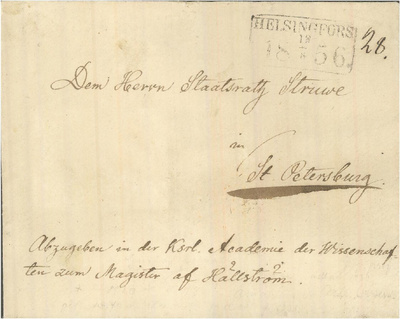 HELSINGFORS
18 56.
28.
Dem Herrn Staatsrath Struwe
in
St Petersburg.
Abzugeben in der Ksrl. Academie der Wissenschaf-
ten zum Magister af Hällström.